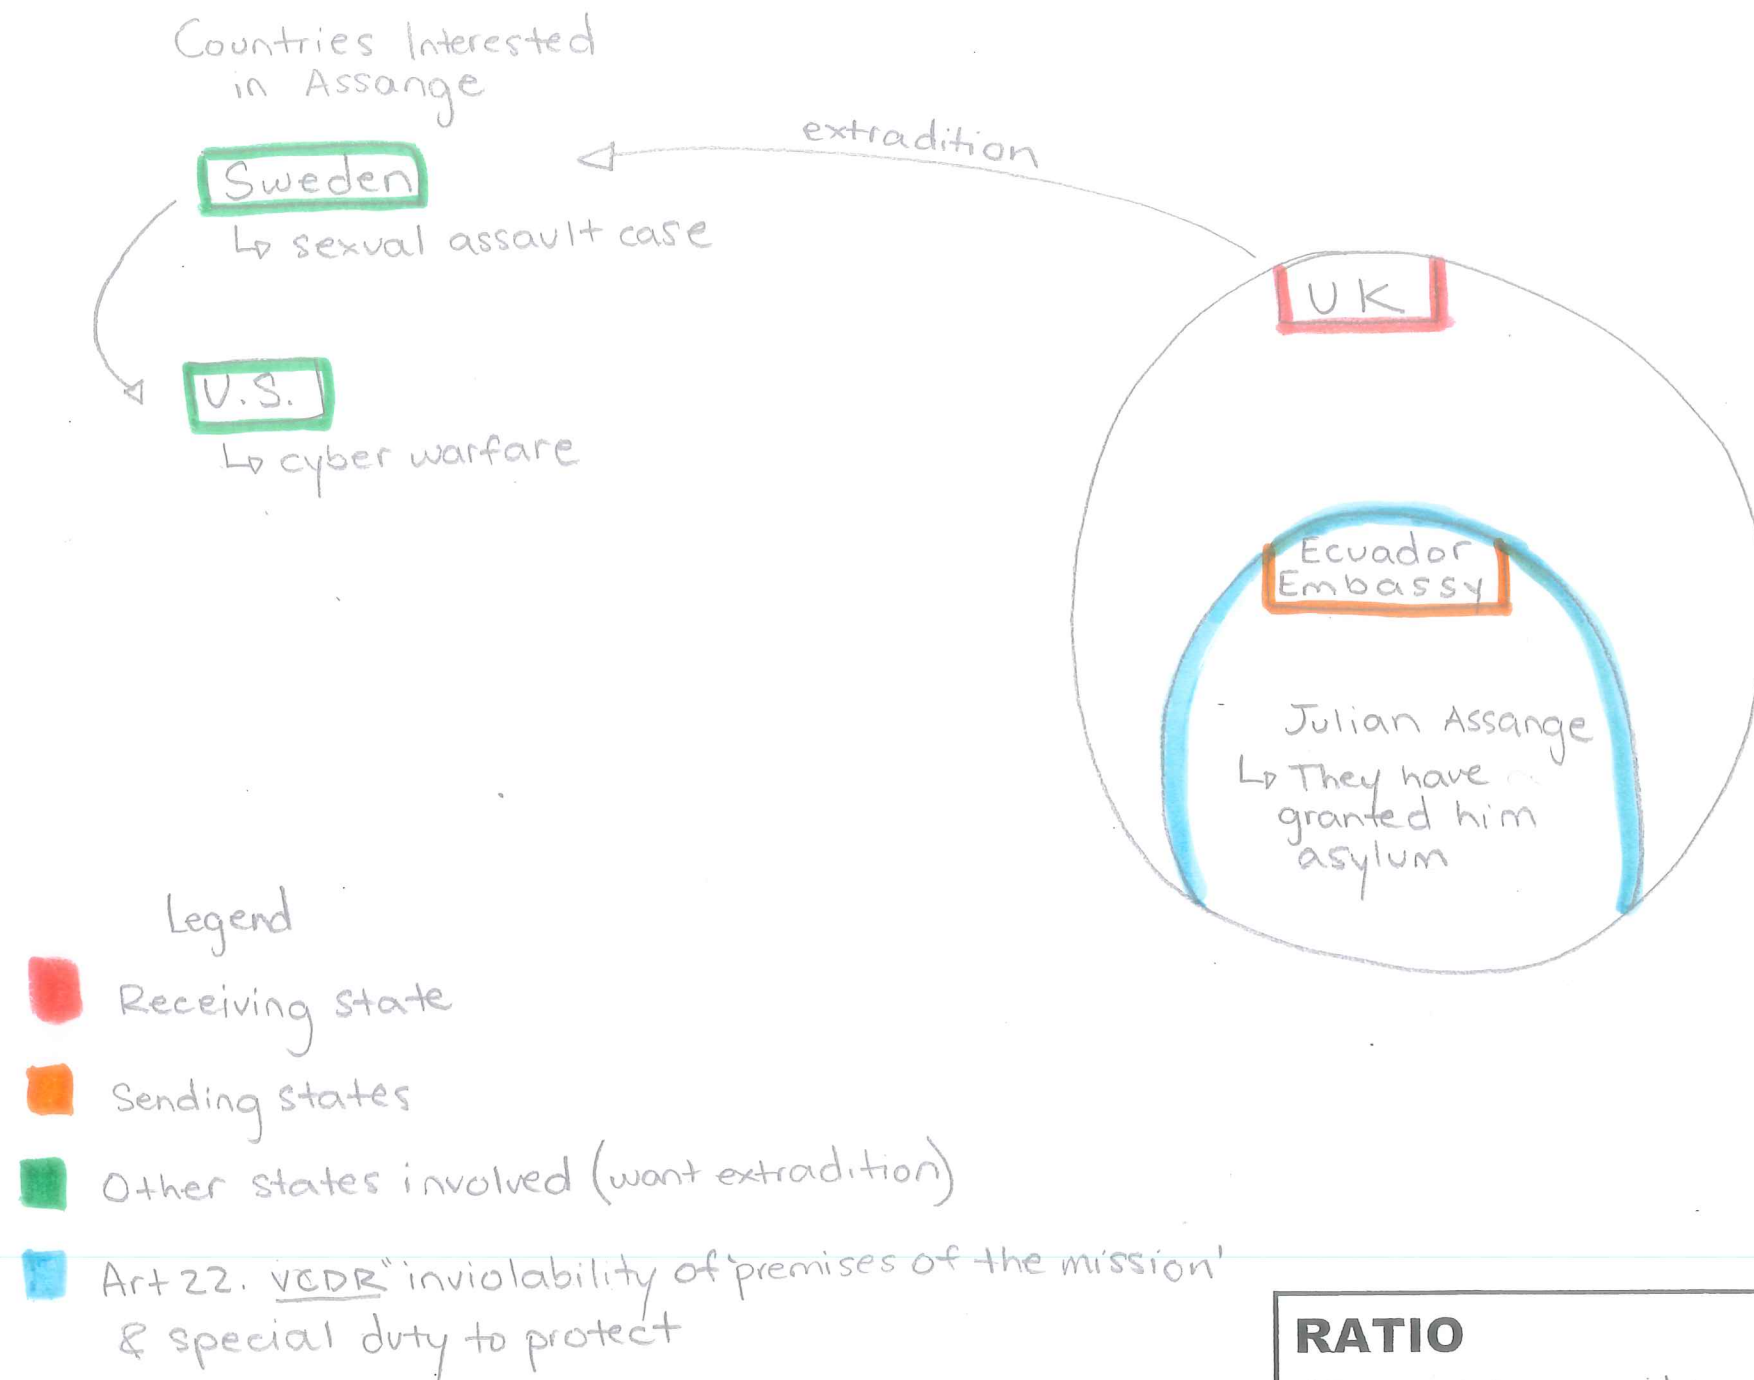 Countries Interested
in Assange
extradition
Sweden
↳ sexual assault case
UK
U.S.
↳ cyber warfare
Ecuador
Embassy
Julian Assange
↳ They have
granted him
asylum
Legend
Receiving state
Sending states
Other states involved (want extradition)
Art 22. VCDR "inviolability of 'premises of the mission'
& special duty to protect
RATIO